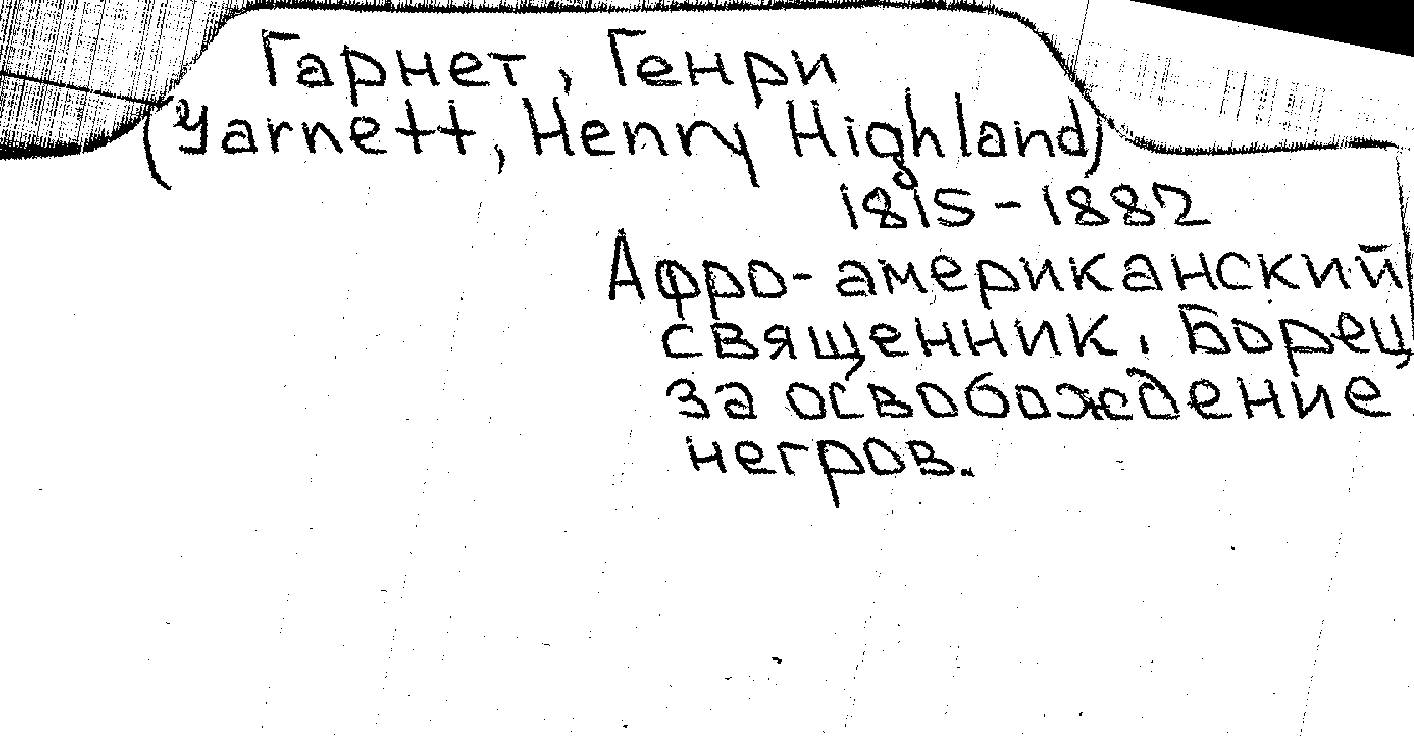 Гарнет, Генри
(Garnett, Henry Highland)
1815-1882
Афро-американский
священник. Борец
за освобождение
негров.